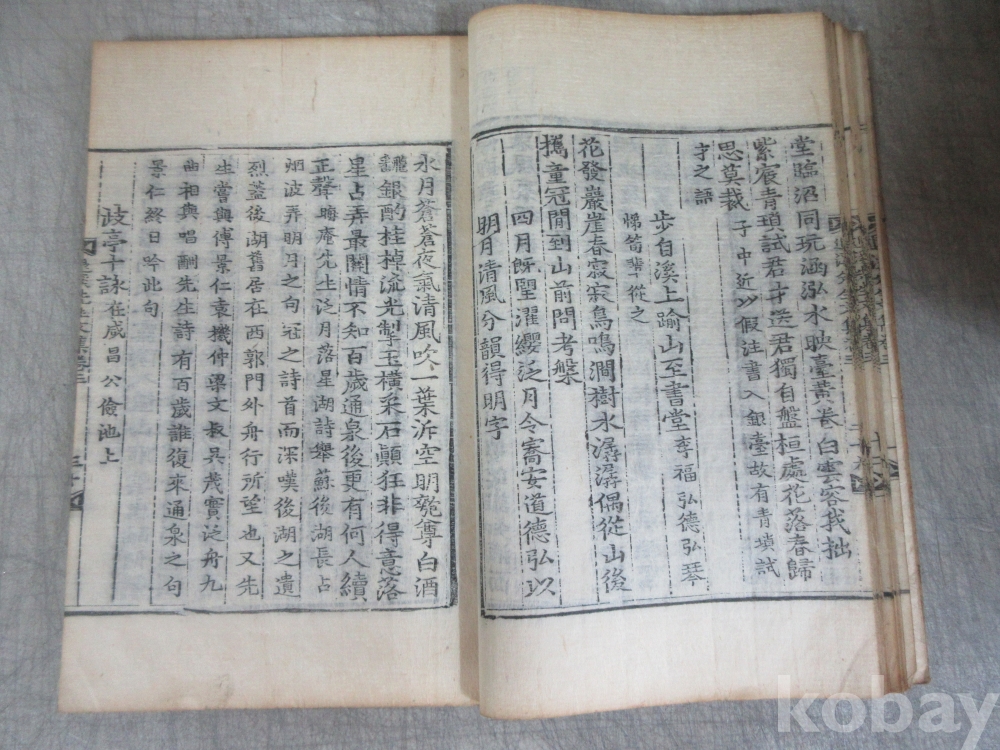 堂臨沼同玩涵泓水映臺黃卷白雲容我拙
紫宸青瑣試君才送君獨自盤桓處花落春歸
思莫裁子中近以假注書入銀臺故有青瑣試
才之語
步自溪上踰山至書堂李福弘德弘琴
悌筍輩從之
花發巖崖春寂寂鳥鳴澗樹水潺潺偶從山後
携童冠閒到山前問考槃
四月旣望濯纓泛月令喬安道德弘以
明月淸風分韻得明字
水月蒼蒼夜氣淸風吹一葉泝空明匏尊白酒
飜銀酌桂棹流光掣玉橫采石顚狂非得意落
星占弄最關情不知百歲通泉後更有何人續
正聲晦庵先生泛月落星湖詩擧蘇後湖長占
烟波弄明月之句冠之詩首而深嘆後湖之遺
烈蓋後湖舊居在西郭門外舟行所望也又先
生嘗與傅景仁袁機仲梁文叔吳茂實泛舟九
曲相與唱酬先生詩有百歲誰復來通泉之句
景仁終日吟此句
三十
盤亭十詠在咸昌公儉池上
kobay